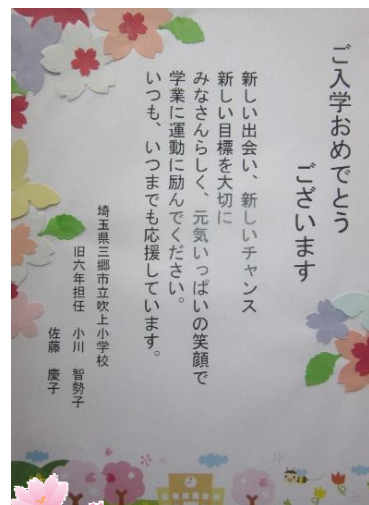 ご入学おめでとう
ございます
新しい出会い、新しいチャンス
新しい目標を大切に
みなさんらしく、元気いっぱいの笑顔で
学業に運動に励んでください。
いつも、いつまでも応援しています。
埼玉県三郷市立吹上小学校
旧六年担任　小川　智勢子
佐藤　慶子